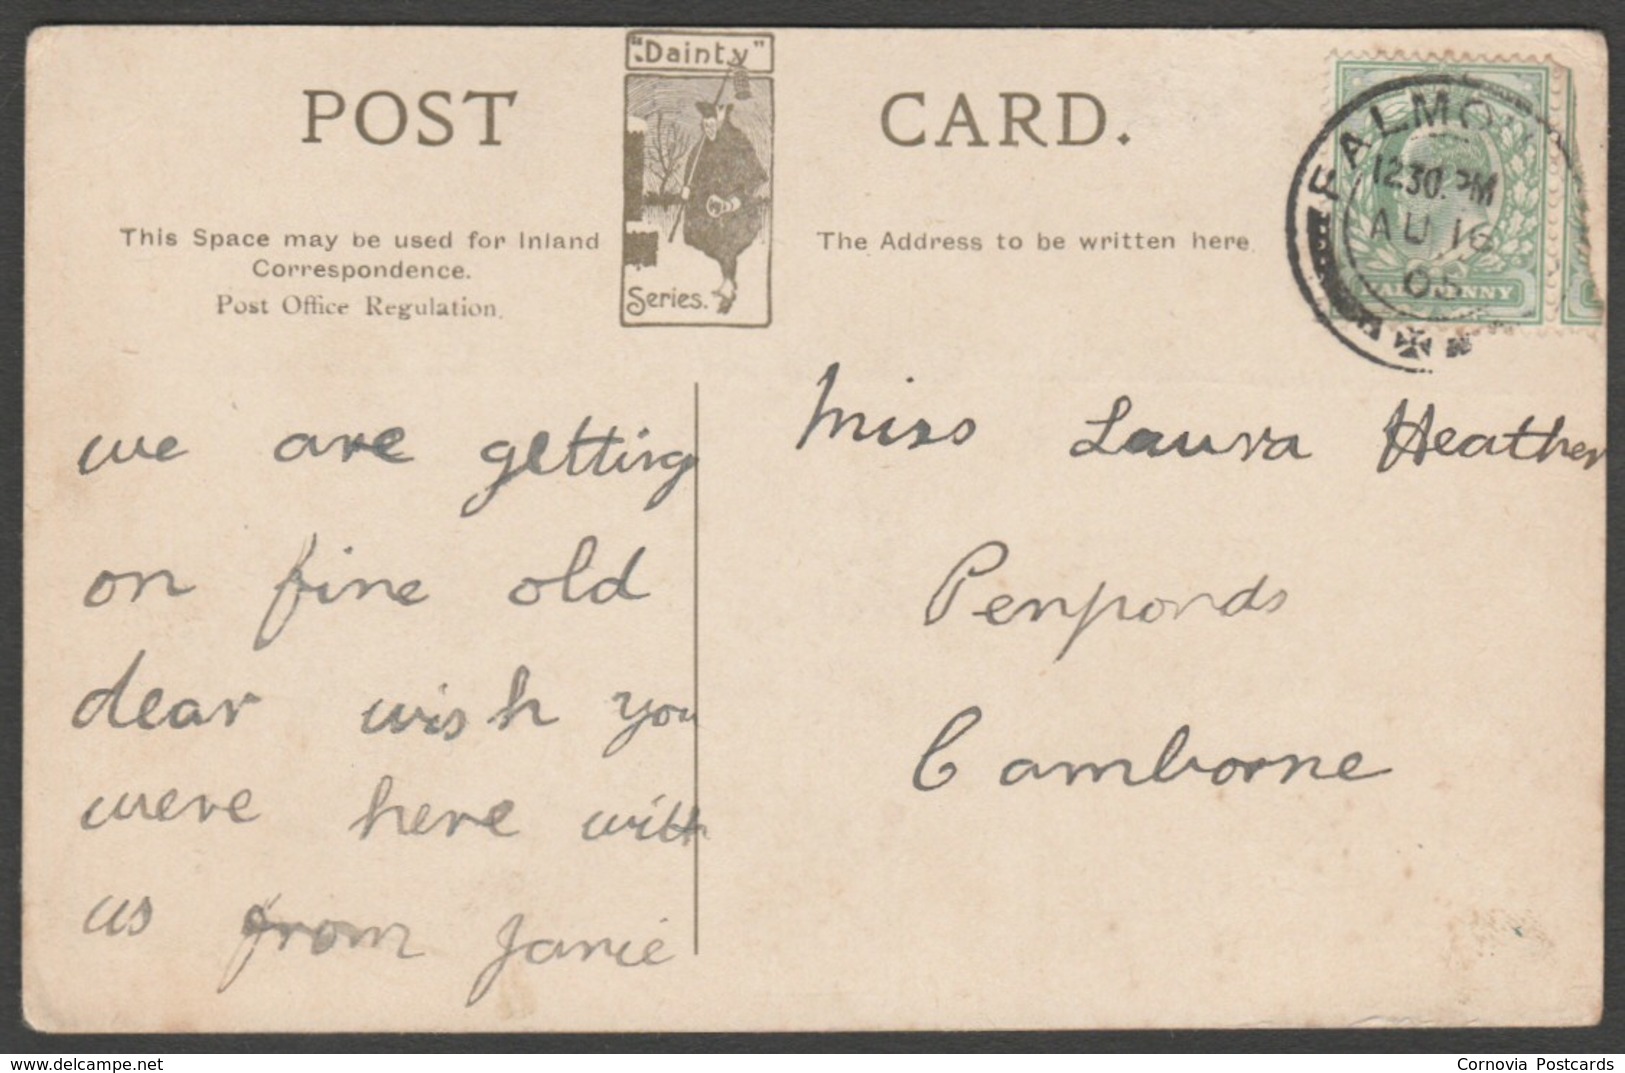 "Dainty"
POST CARD.
This Space may be used for Inland
Correspondence.
Post Office Regulation.
Series.
The Address to be written here.
12.30.PM
AU 16
05
we are getting
on fine old
dear wish you
were here with
us from Janie
Miss Laura Heather
Penponds
Camborne
delcampe.net
Cornovia Postcards